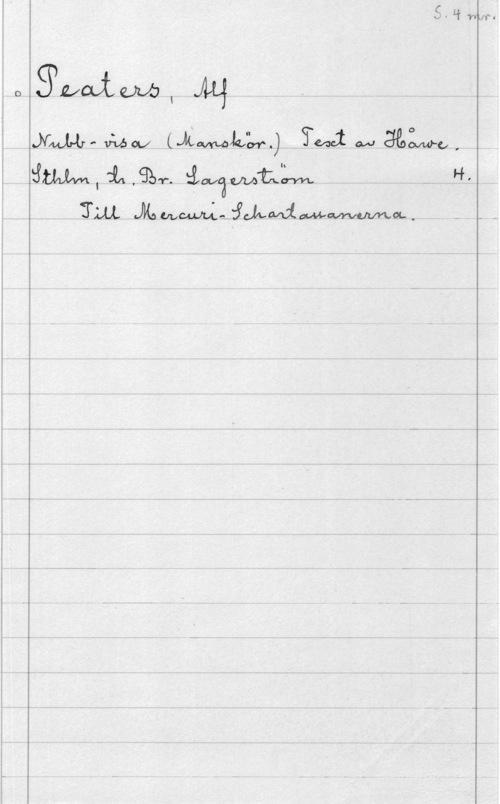 S. 4 mr.
Peaters, Alf
Nubb-visa (Manskör.) Text av Håwe.
Sthlm, tr. Br. Lagerström 4.
Till Mercuri-Schartauanerna.